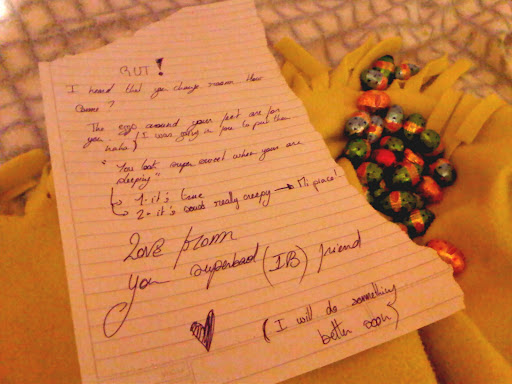 BUT!
I heard that you change room How
Come?
The eggs around your feet are for
you (I was going on to put them
haha)
"You look super sweet when your are
sleeping"
1. it's true
2 - it's really creepy → Mi piace!
Love from
you superbad (IB) friend
(I will do something
better soon)